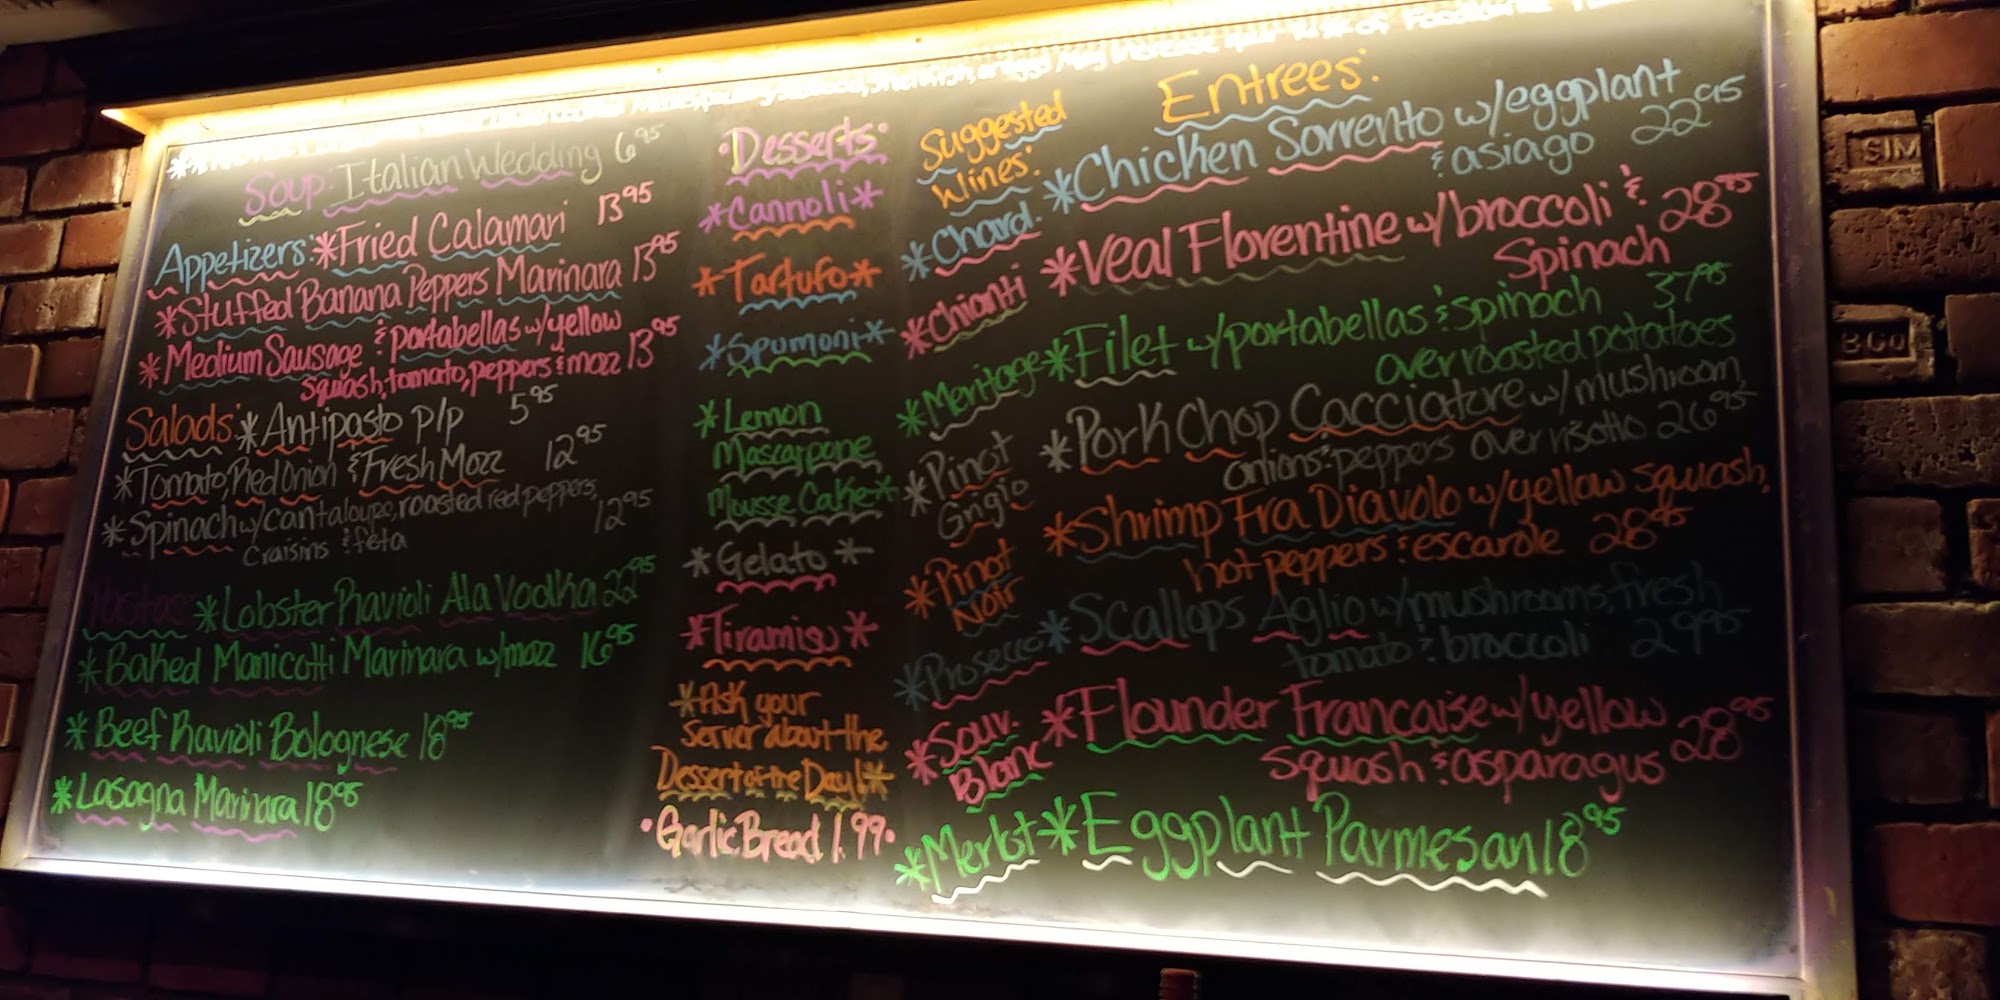 Soup: Italian Wedding 6.95
Appetizers: *Fried Calamari 13.95
*Stuffed Banana Peppers Marinara 13.95
*Medium Sausage & portabellas w/yellow
squash, tomato, peppers & mozz 13.95
Salads: *Antipasto p/p 5.95
*Tomato, Red Onion & Fresh Mozz 12.95
*Spinach w/cantaloupe, roasted red peppers,
craisins & feta 12.95
Pastas: *Lobster Ravioli Ala Vodka 22.95
*Baked Manicotti Marinara w/mozz 16.95
*Beef Ravioli Bolognese 18.95
*Lasagna Marinara 18.95
•Desserts•
*Cannoli*
*Tartufo*
*Spumoni*
*Lemon
Mascarpone
Mousse Cake*
*Gelato*
*Tiramisu*
*Ask your
Server about the
Dessert of the Day!*
•Garlic Bread 1.99•
Suggested
Wines:
*Chard.
*Chianti
*Meritage
*Pinot
Grigio
*Pinot
Noir
*Prosecco
*Sauv.
Blanc
*Merlot
Entrees:
*Chicken Sorrento w/eggplant
& asiago 22.95
*Veal Florentine w/broccoli &
Spinach 28.95
*Filet w/portabellas & spinach 37.95
over roasted potatoes
*Pork Chop Cacciatore w/mushroom,
onions & peppers over risotto 26.95
*Shrimp Fra Diavolo w/yellow squash,
hot peppers & escarole 28.95
*Scallops Aglio w/mushrooms, fresh
tomato & broccoli 29.95
*Flounder Francaise w/yellow
Squash & asparagus 28.95
*Eggplant Parmesan 18.95
SIM
BCO